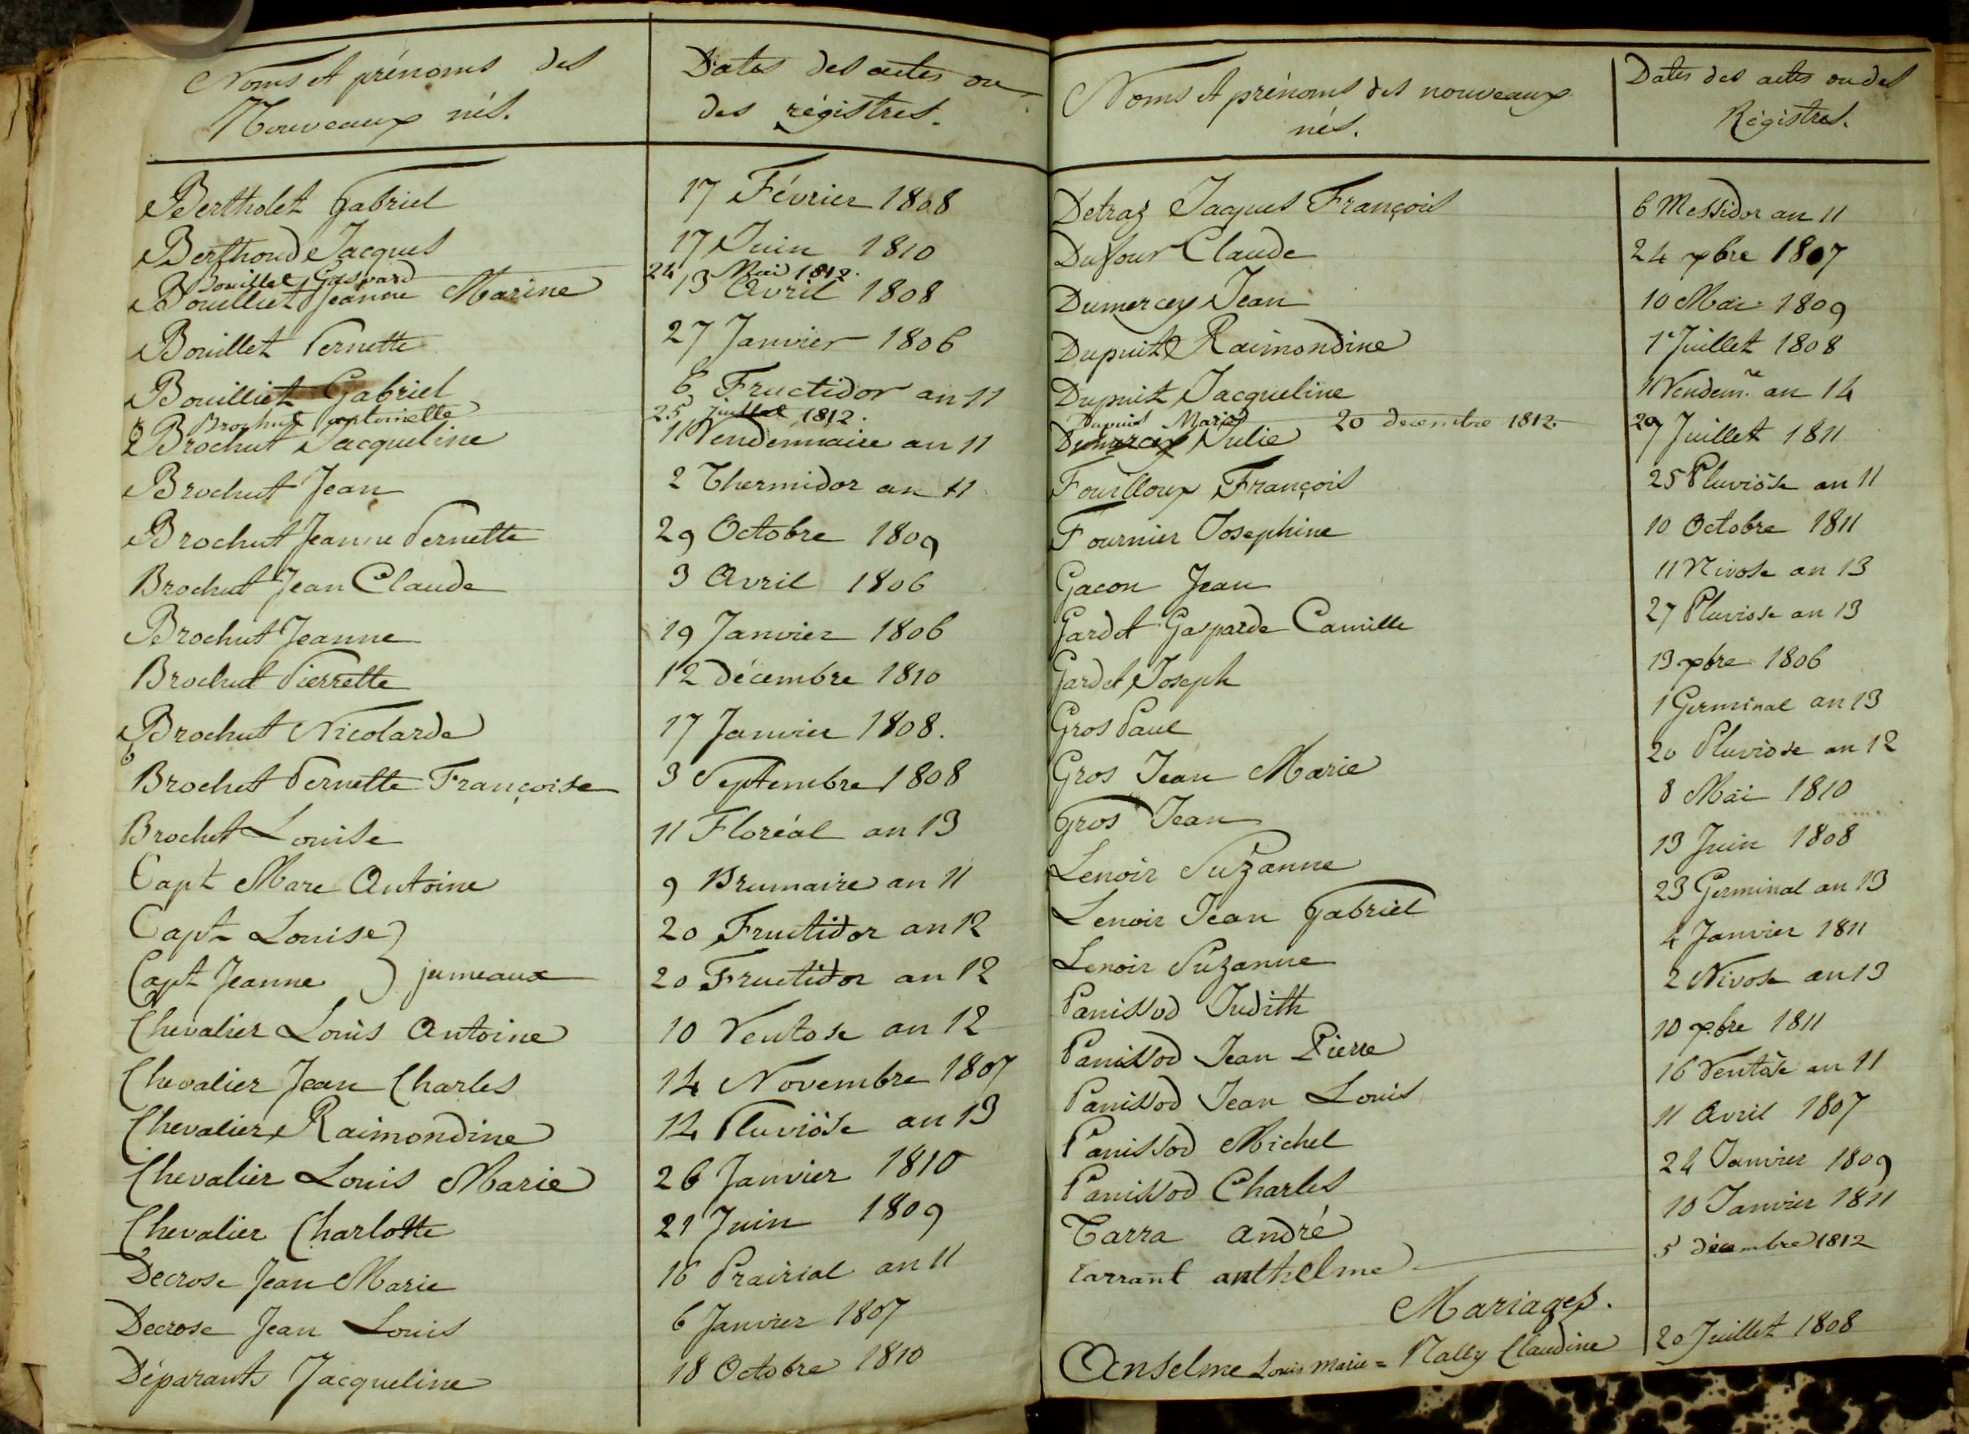 Noms et prénoms des
Nouveaux nés.
Dates des actes ou
des régistres.
Bertholet Gabriel 17 Février 1808
Berthoud Jacques 17 Juin 1810
Bouillet Gaspard 24 Mai 1812.
Bouilliet Jeanne Marine 13 Avril 1808
Bouillet Pernette 27 Janvier 1806
Bouilliet Gabriel 6 Fructidor an 11
Brochut Antoinette 25 Juillet 1812.
Brochut Jacqueline 11 Vendemiaire an 11
Brochut Jean 2 Thermidor an 11
Brochut Jeanne Pernette 29 Octobre 1809
Brochut Jean Claude 3 Avril 1806
Brochut Jeanne 19 Janvier 1806
Brochut Pierrette 12 décembre 1810
Brochut Nicolarde 17 Janvier 1808.
Brochet Pernette Françoise 3 Septembre 1808
Brochet Louise 11 Floréal an 13
Capt Marc Antoine 9 Brumaire an 11
Capt Louise 20 Fructidor an 12
Capt Jeanne } jumeaux 20 Fructidor an 12
Chevalier Louis Antoine 10 Ventose an 12
Chevalier Jean Charles 14 Novembre 1807
Chevalier Raimondine 14 Pluviôse an 13
Chevalier Louis Marie 26 Janvier 1810
Chevalier Charlotte 21 Juin 1809
Decrose Jean Marie 16 Prairial an 11
Decrose Jean Louis 6 Janvier 1807
Déparants Jacqueline 18 Octobre 1810
Noms et prénoms des nouveaux
nés.
Dates des actes ou des
Régistres.
Detraz Jacques François 6 Messidor an 11
Dufour Claude 24 xbre 1807
Dumercey Jean 10 Mai 1809
Dupuits Raimondine 1er Juillet 1808
Dupuits Jacqueline 11 Vendem.re an 14
Dupuis Marie 20 decembre 1812
Dumercey Julie 29 Juillet 1811
Fouilloux François 25 Pluviôse an 11
Fournier Josephine 10 Octobre 1811
Gacon Jean 11 Nivose an 13
Gardet Gasparde Camille 27 Pluviose an 13
Gardet Joseph 13 xbre 1806
Gros Paul 1 Germinal an 13
Gros Jean Marie 20 Pluviose an 12
Gros Jean 8 Mai 1810
Lenoir Suzanne 13 Juin 1808
Lenoir Jean Gabriel 23 Germinal an 13
Lenoir Suzanne 4 Janvier 1811
Panissod Judith 2 Nivose an 13
Panissod Jean Pierre 10 xbre 1811
Panissod Jean Louis 16 Ventôse an 11
Panissod Michel 11 Avril 1807
Panissod Charles 24 Janvier 1809
Tarra André 10 Janvier 1811
Tarrant anthelme 5 décembre 1812
Mariages.
Anselme Louis Marie = Nally Claudine 20 Juillet 1808